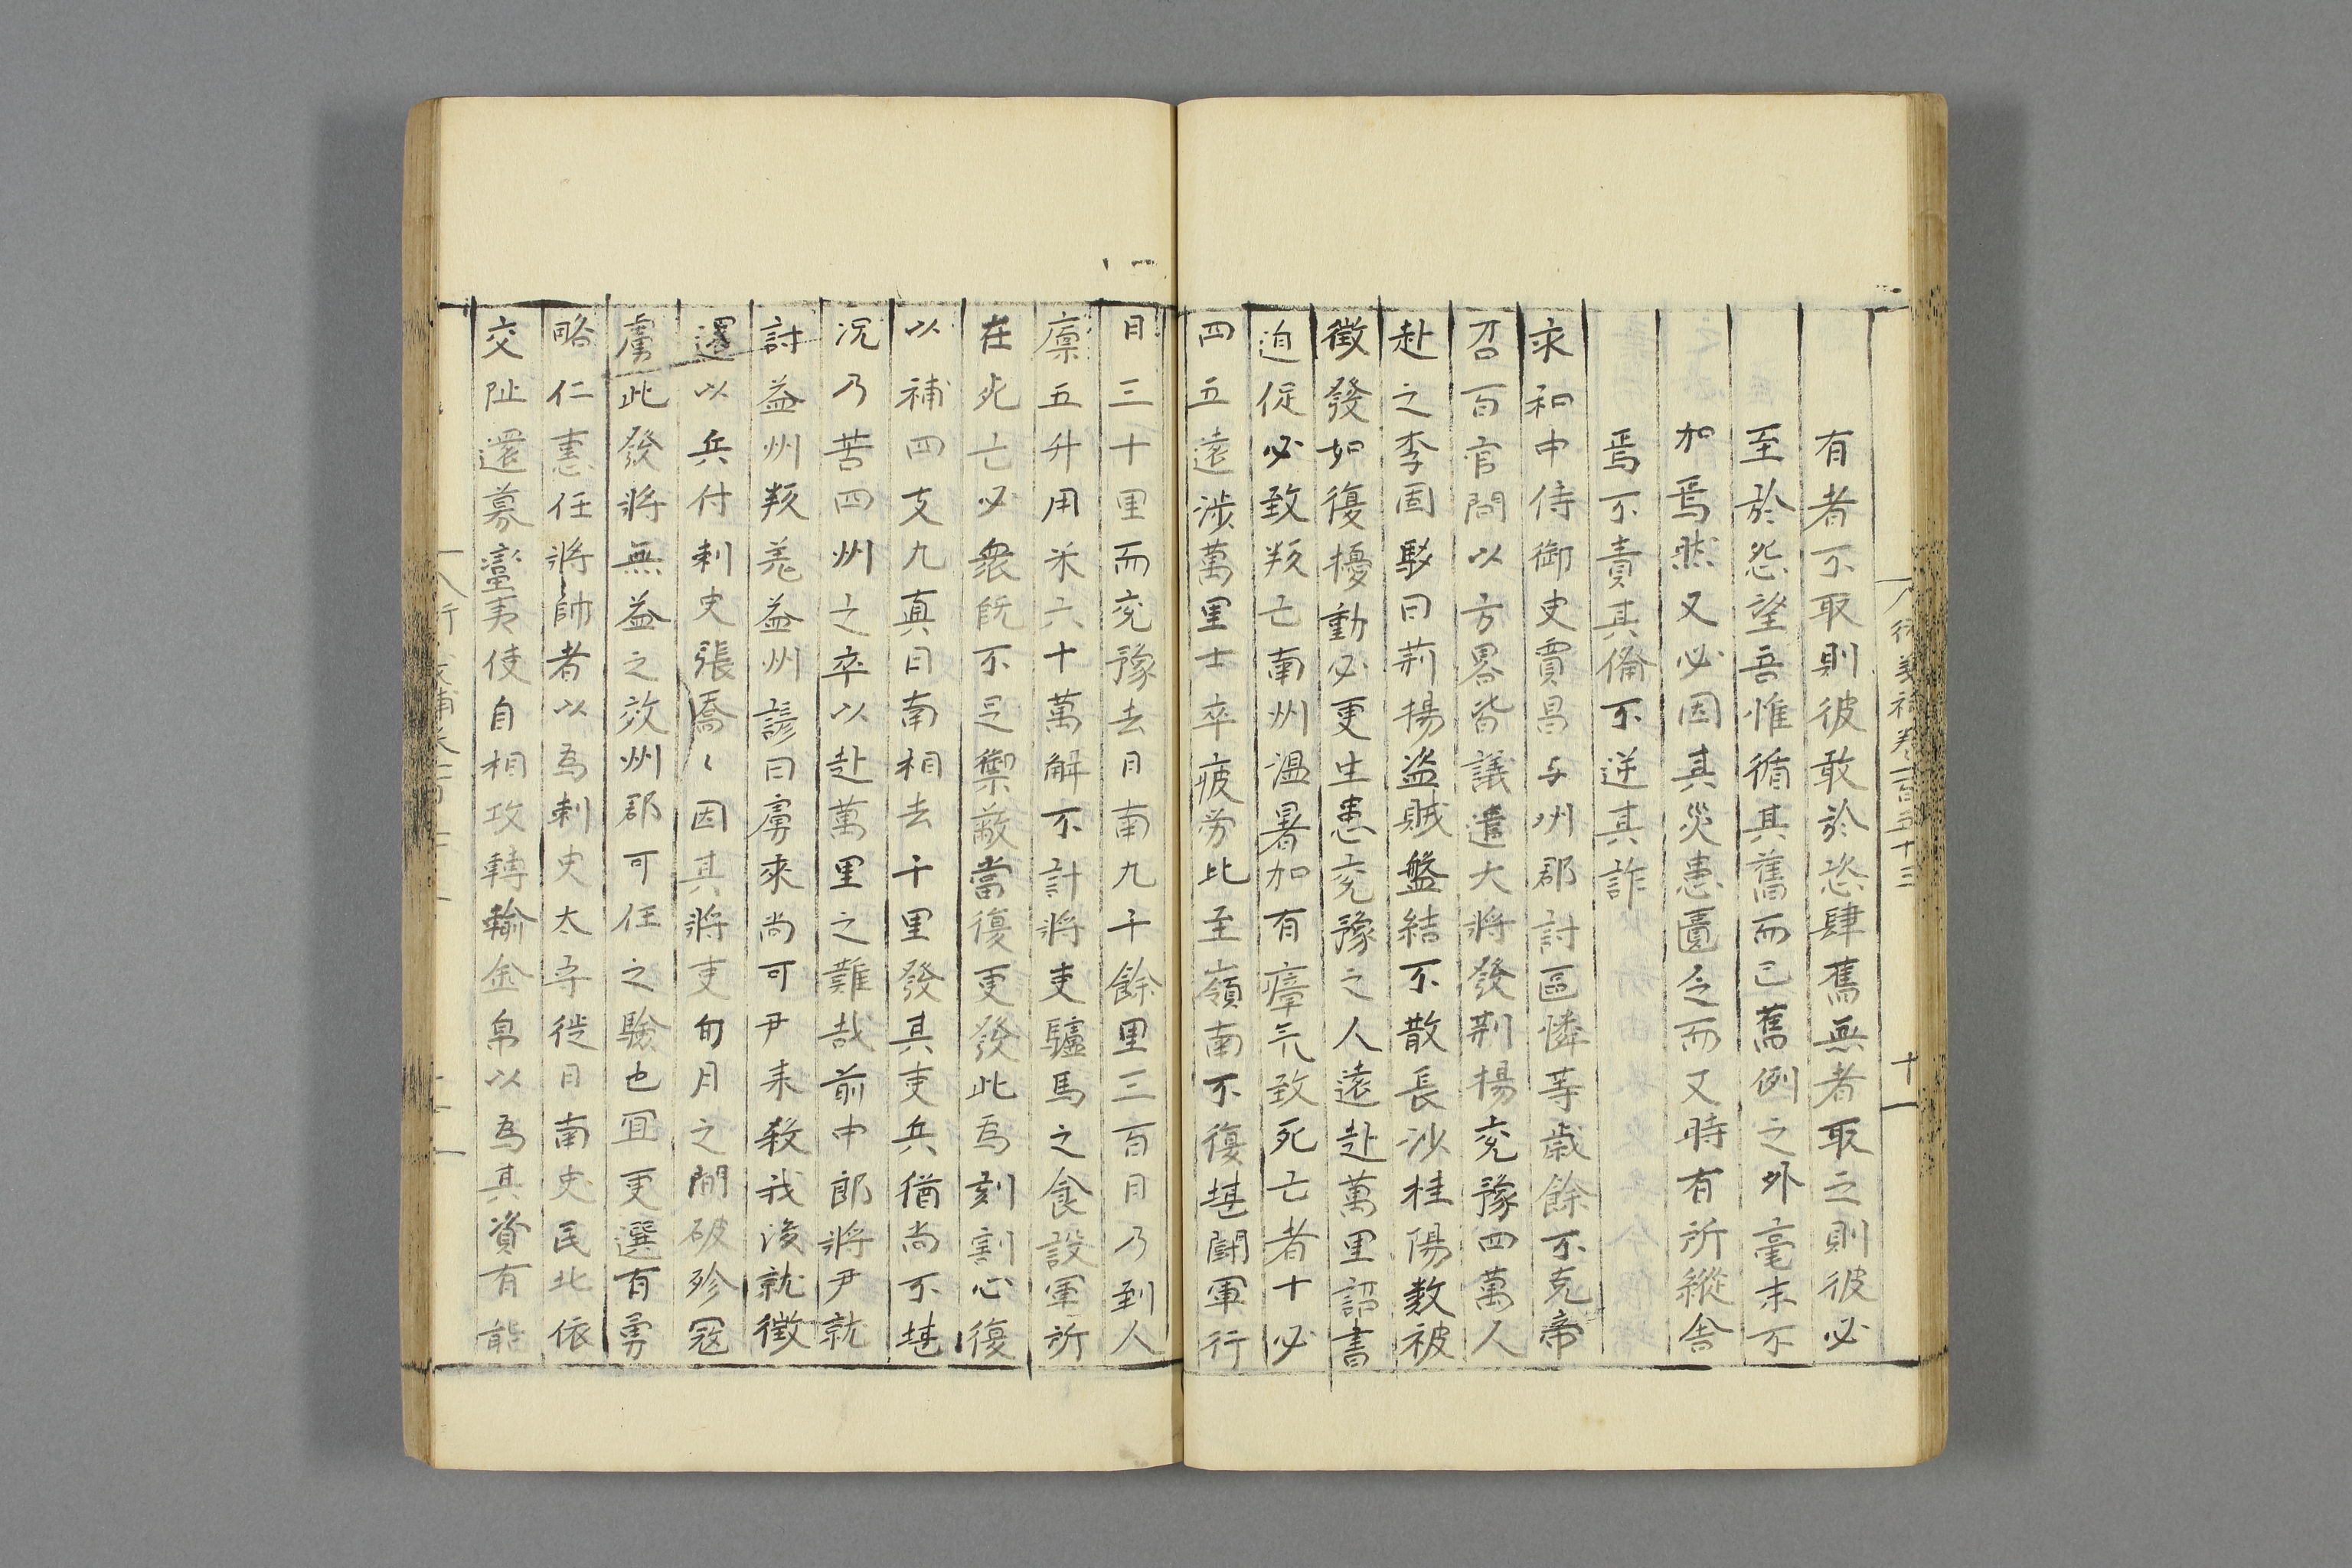 行義補卷一百五十三
十一
有者不取則彼敢於恣肆舊無者取之則彼必
至於怨望吾惟循其舊而已舊例之外毫末不
加焉然又必因其災患匱乏而又時有所縱舍
焉不責其備不逆其詐
永和中侍御史賈昌与州郡討區憐等歲餘不克帝
召百官問以方畧皆議遣大將發荆揚兖豫四萬人
赴之李固駁曰荊揚盗賊盤結不散長沙桂陽数被
徵發如復擾動必更生患兖豫之人遠赴萬里詔書
迫促必致叛亡南州温暑加有瘴氣致死亡者十必
四五遠涉萬里士卒疲勞比至嶺南不復堪鬪軍行
日三十里而兖豫去日南九千餘里三百日乃到人
廪五升用米六十萬斛不計將吏驢馬之食設軍所
在死亡必衆既不足禦敵當復更發此為刻割心復
以補四支九真日南相去千里發其吏兵猶尚不堪
况乃苦四州之卒以赴萬里之難哉前中郎將尹就
討益州叛羌益州諺曰虜來尚可尹来殺我後就徵
還以兵付刺史張喬〻因其將吏旬月之間破殄冦
虜此發將無益之效州郡可任之驗也宜更選有勇
略仁惠任將帥者以為刺史太守徙日南吏民北依
交阯還募蠻夷使自相攻轉輸金帛以為其資有能